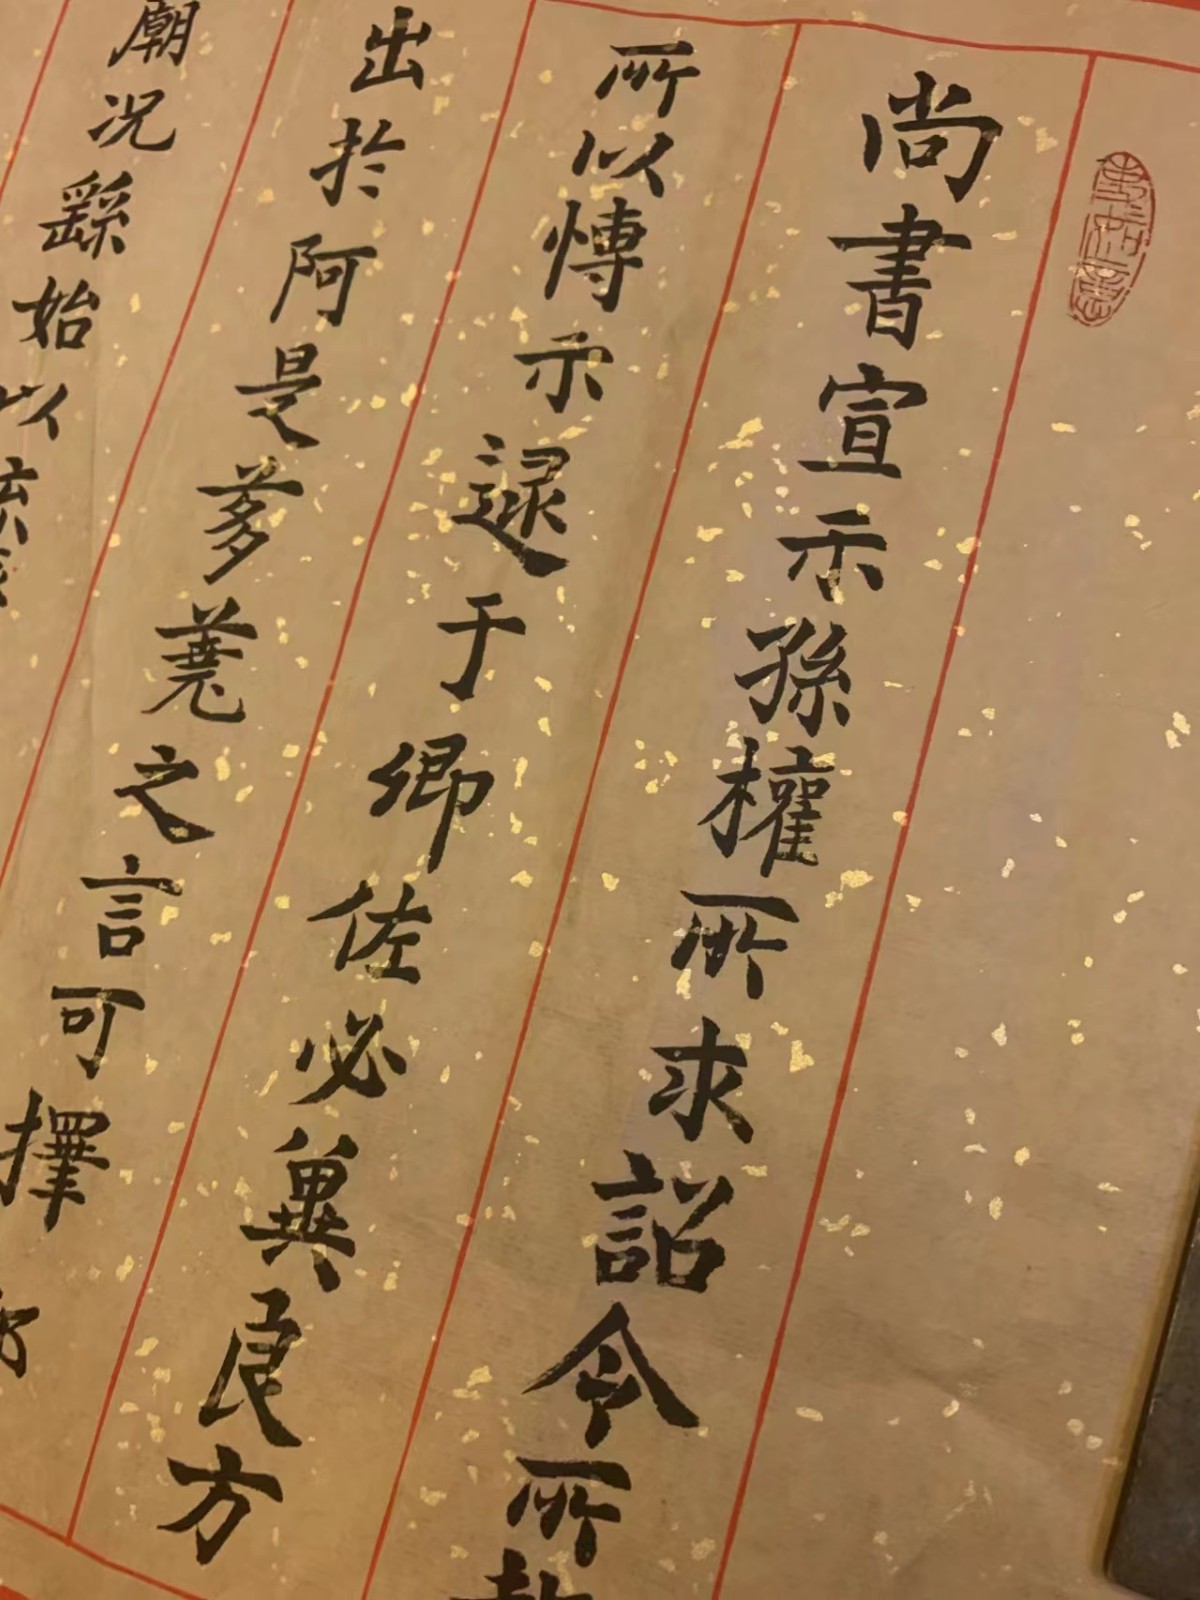 尚書宣示孫權所求詔令所
所以愽示逮于卿佐必冀良方
出於阿是芻蕘之言可擇
廟况繇始以